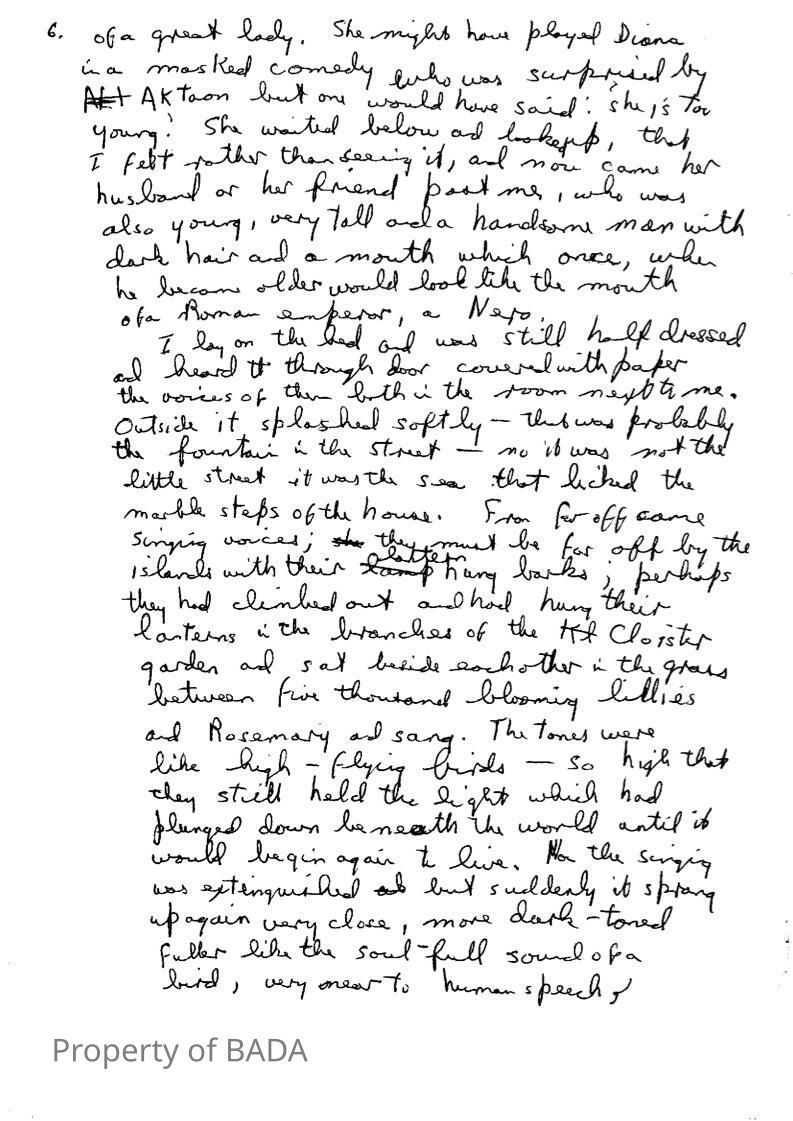 6. of a great lady. She might have played Diana
in a masked comedy who was surprised by
Akt AKtaon but one would have said: she is too
young! She waited below and looked up, that
I felt rather than seeing it, and now came her
husband or her friend past me, who was
also young, very tall and a handsome man with
dark hair and a mouth which once, when
he became older would look like the mouth
of a Roman emperor, a Nero.
I lay on the bed and was still half dressed
and heard through door covered with paper
the voices of them both in the room next to me.
Outside it splashed softly — that was probably
the fountain in the street — no it was not the
little street it was the sea that licked the
marble steps of the house. From far off came
singing voices; she they must be far off by the
islands with their lamp lantern hung barks; perhaps
they had climbed out and had hung their
lanterns in the branches of the Cloister
garden and sat beside each other in the grass
between five thousand blooming lillies
and Rosemary and sang. The tones were
like high-flying birds — so high that
they still held the light which had
plunged down beneath the world until it
would begin again to live. Now the singing
was extinguished but suddenly it sprang
up again very close, more dark-toned
fuller like the soul-full sound of a
bird, very near to human speech,
Property of BADA